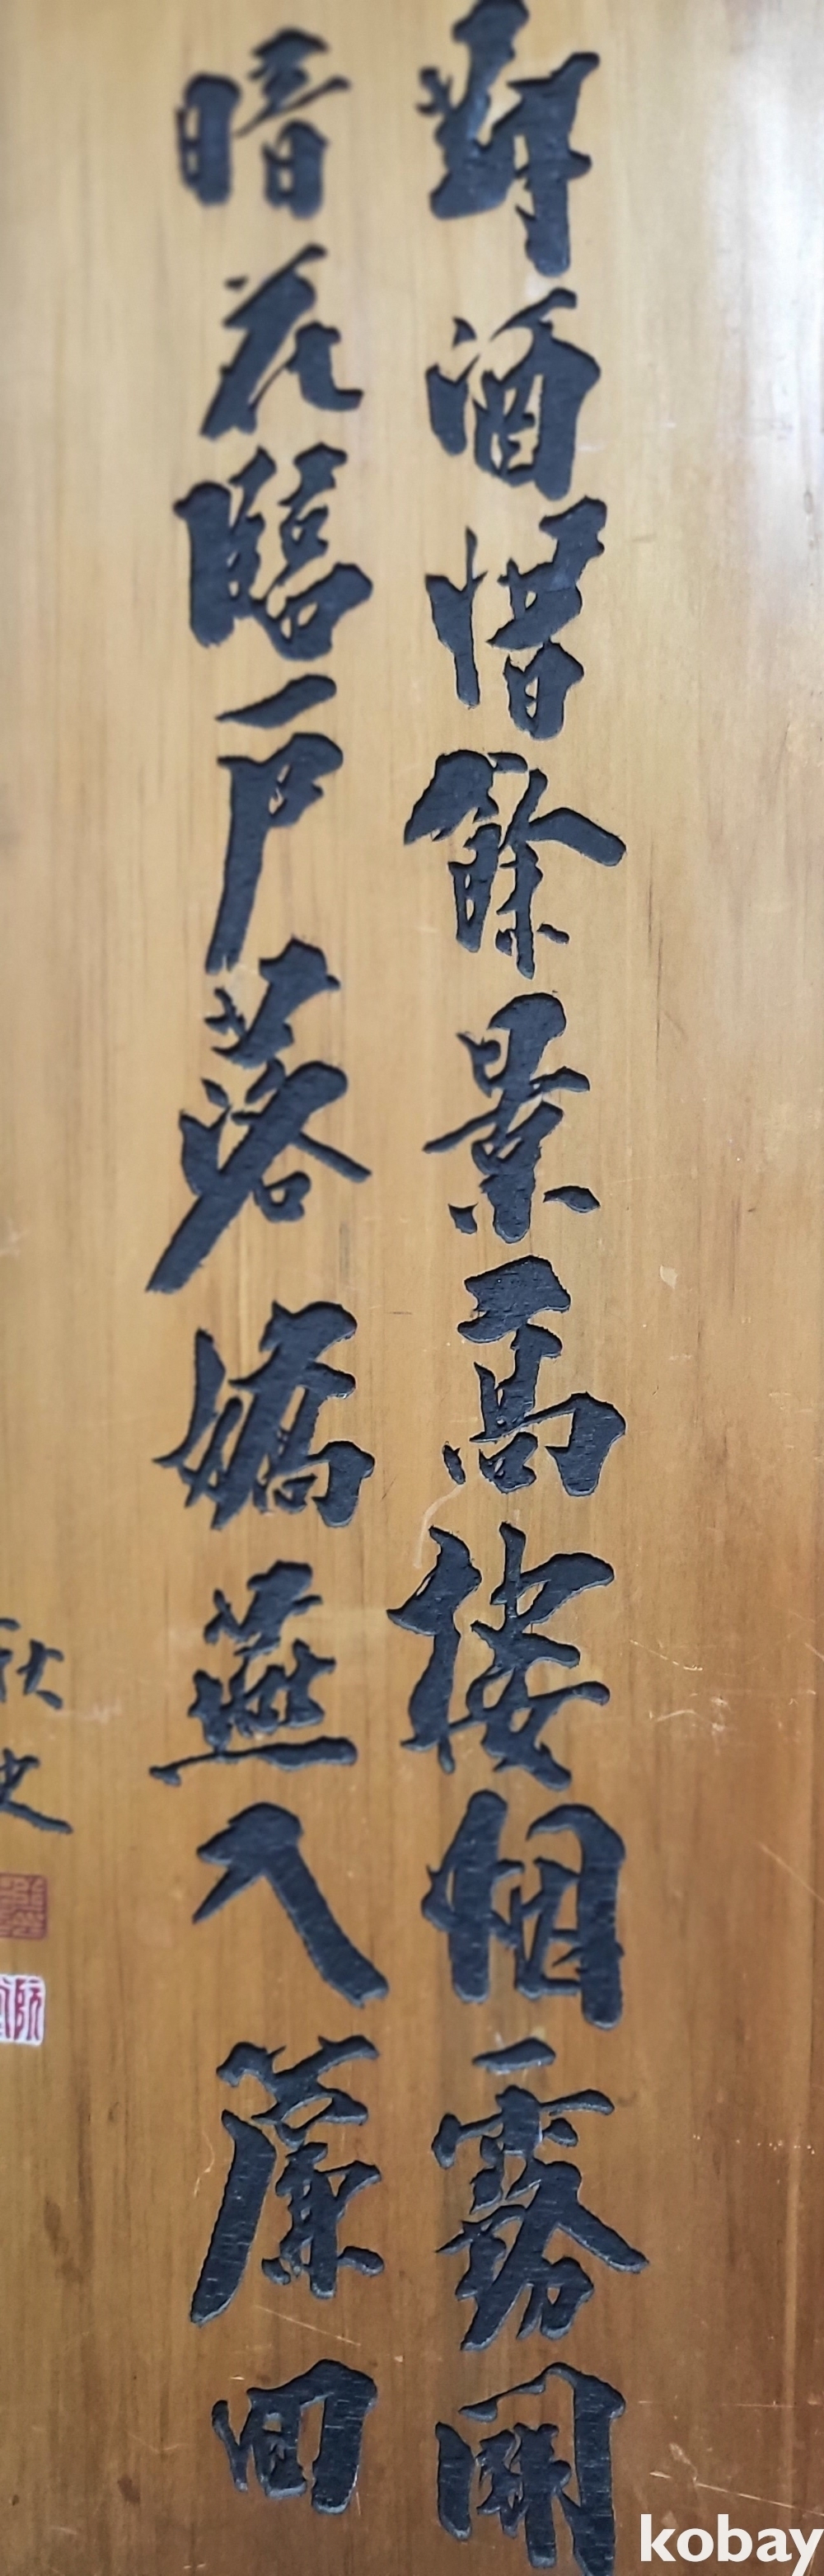 對酒惜餘景高樓烟霧開
暗花臨戶落嬌燕入簾回
秋史
kobay